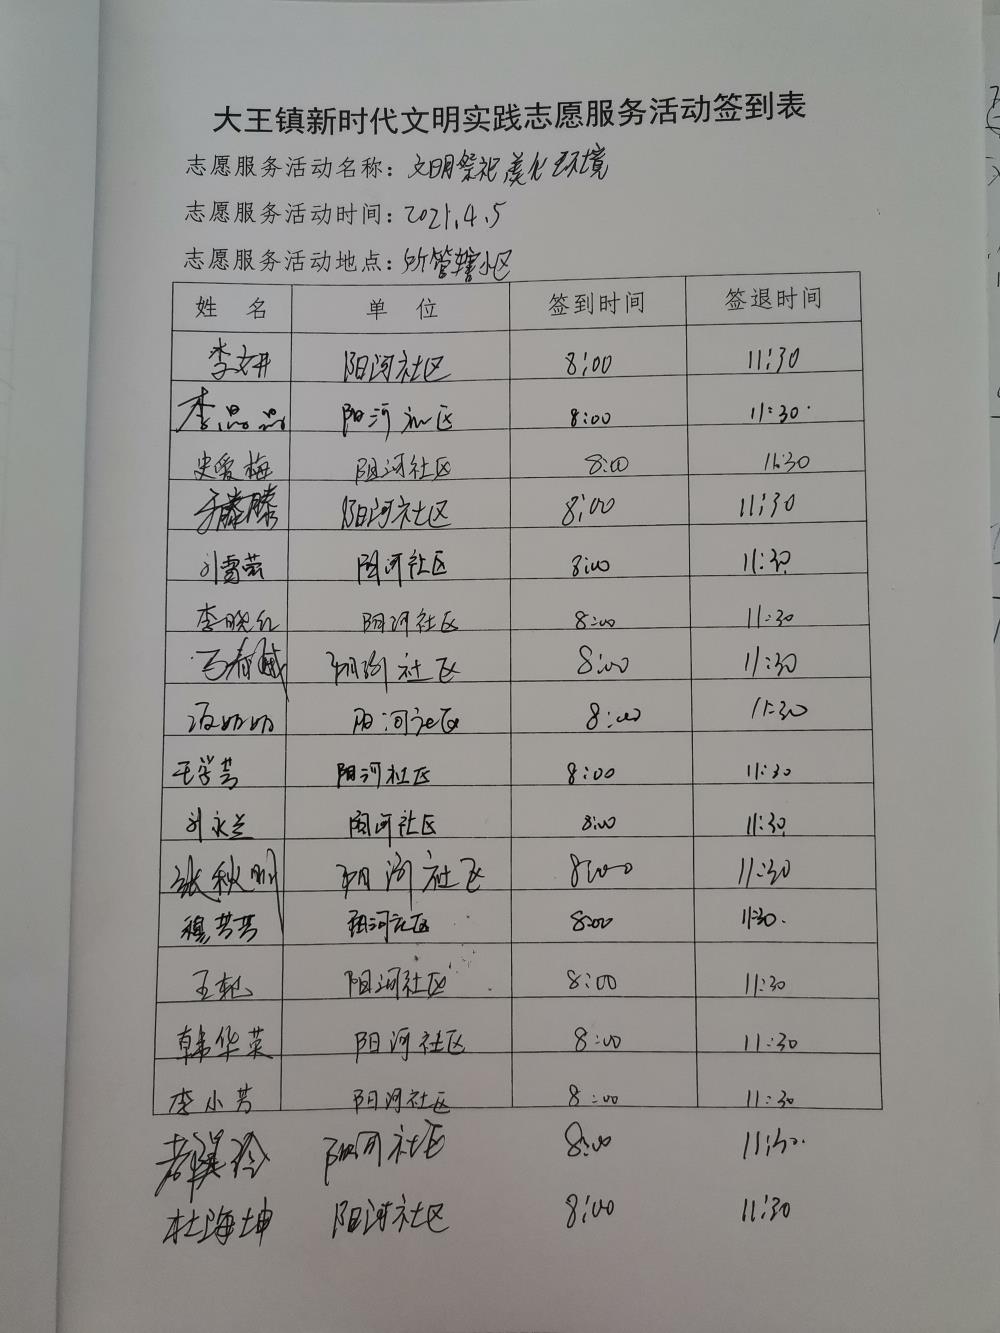 大王镇新时代文明实践志愿服务活动签到表
志愿服务活动名称：文明祭祀美化环境
志愿服务活动时间：2021.4.5
志愿服务活动地点：所管辖小区
姓 名 单 位 签到时间 签退时间
李文妍 阳河社区 8:00 11:30
李晶晶 阳河社区 8:00 11:30
史爱梅 阳河社区 8:00 11:30
于滕滕 阳河社区 8:00 11:30
刘雪英 阳河社区 8:00 11:30
李晓红 阳河社区 8:00 11:30
阳河社区 8:00 11:30
阳河社区 8:00 11:30
王学芳 阳河社区 8:00 11:30
刘永兰 阳河社区 8:00 11:30
张秋明 阳河社区 8:00 11:30
穆芳芳 阳河社区 8:00 11:30
王艳 阳河社区 8:00 11:30
韩华英 阳河社区 8:00 11:30
李小芳 阳河社区 8:00 11:30
阳河社区 8:00 11:30
杜海坤 阳河社区 8:00 11:30